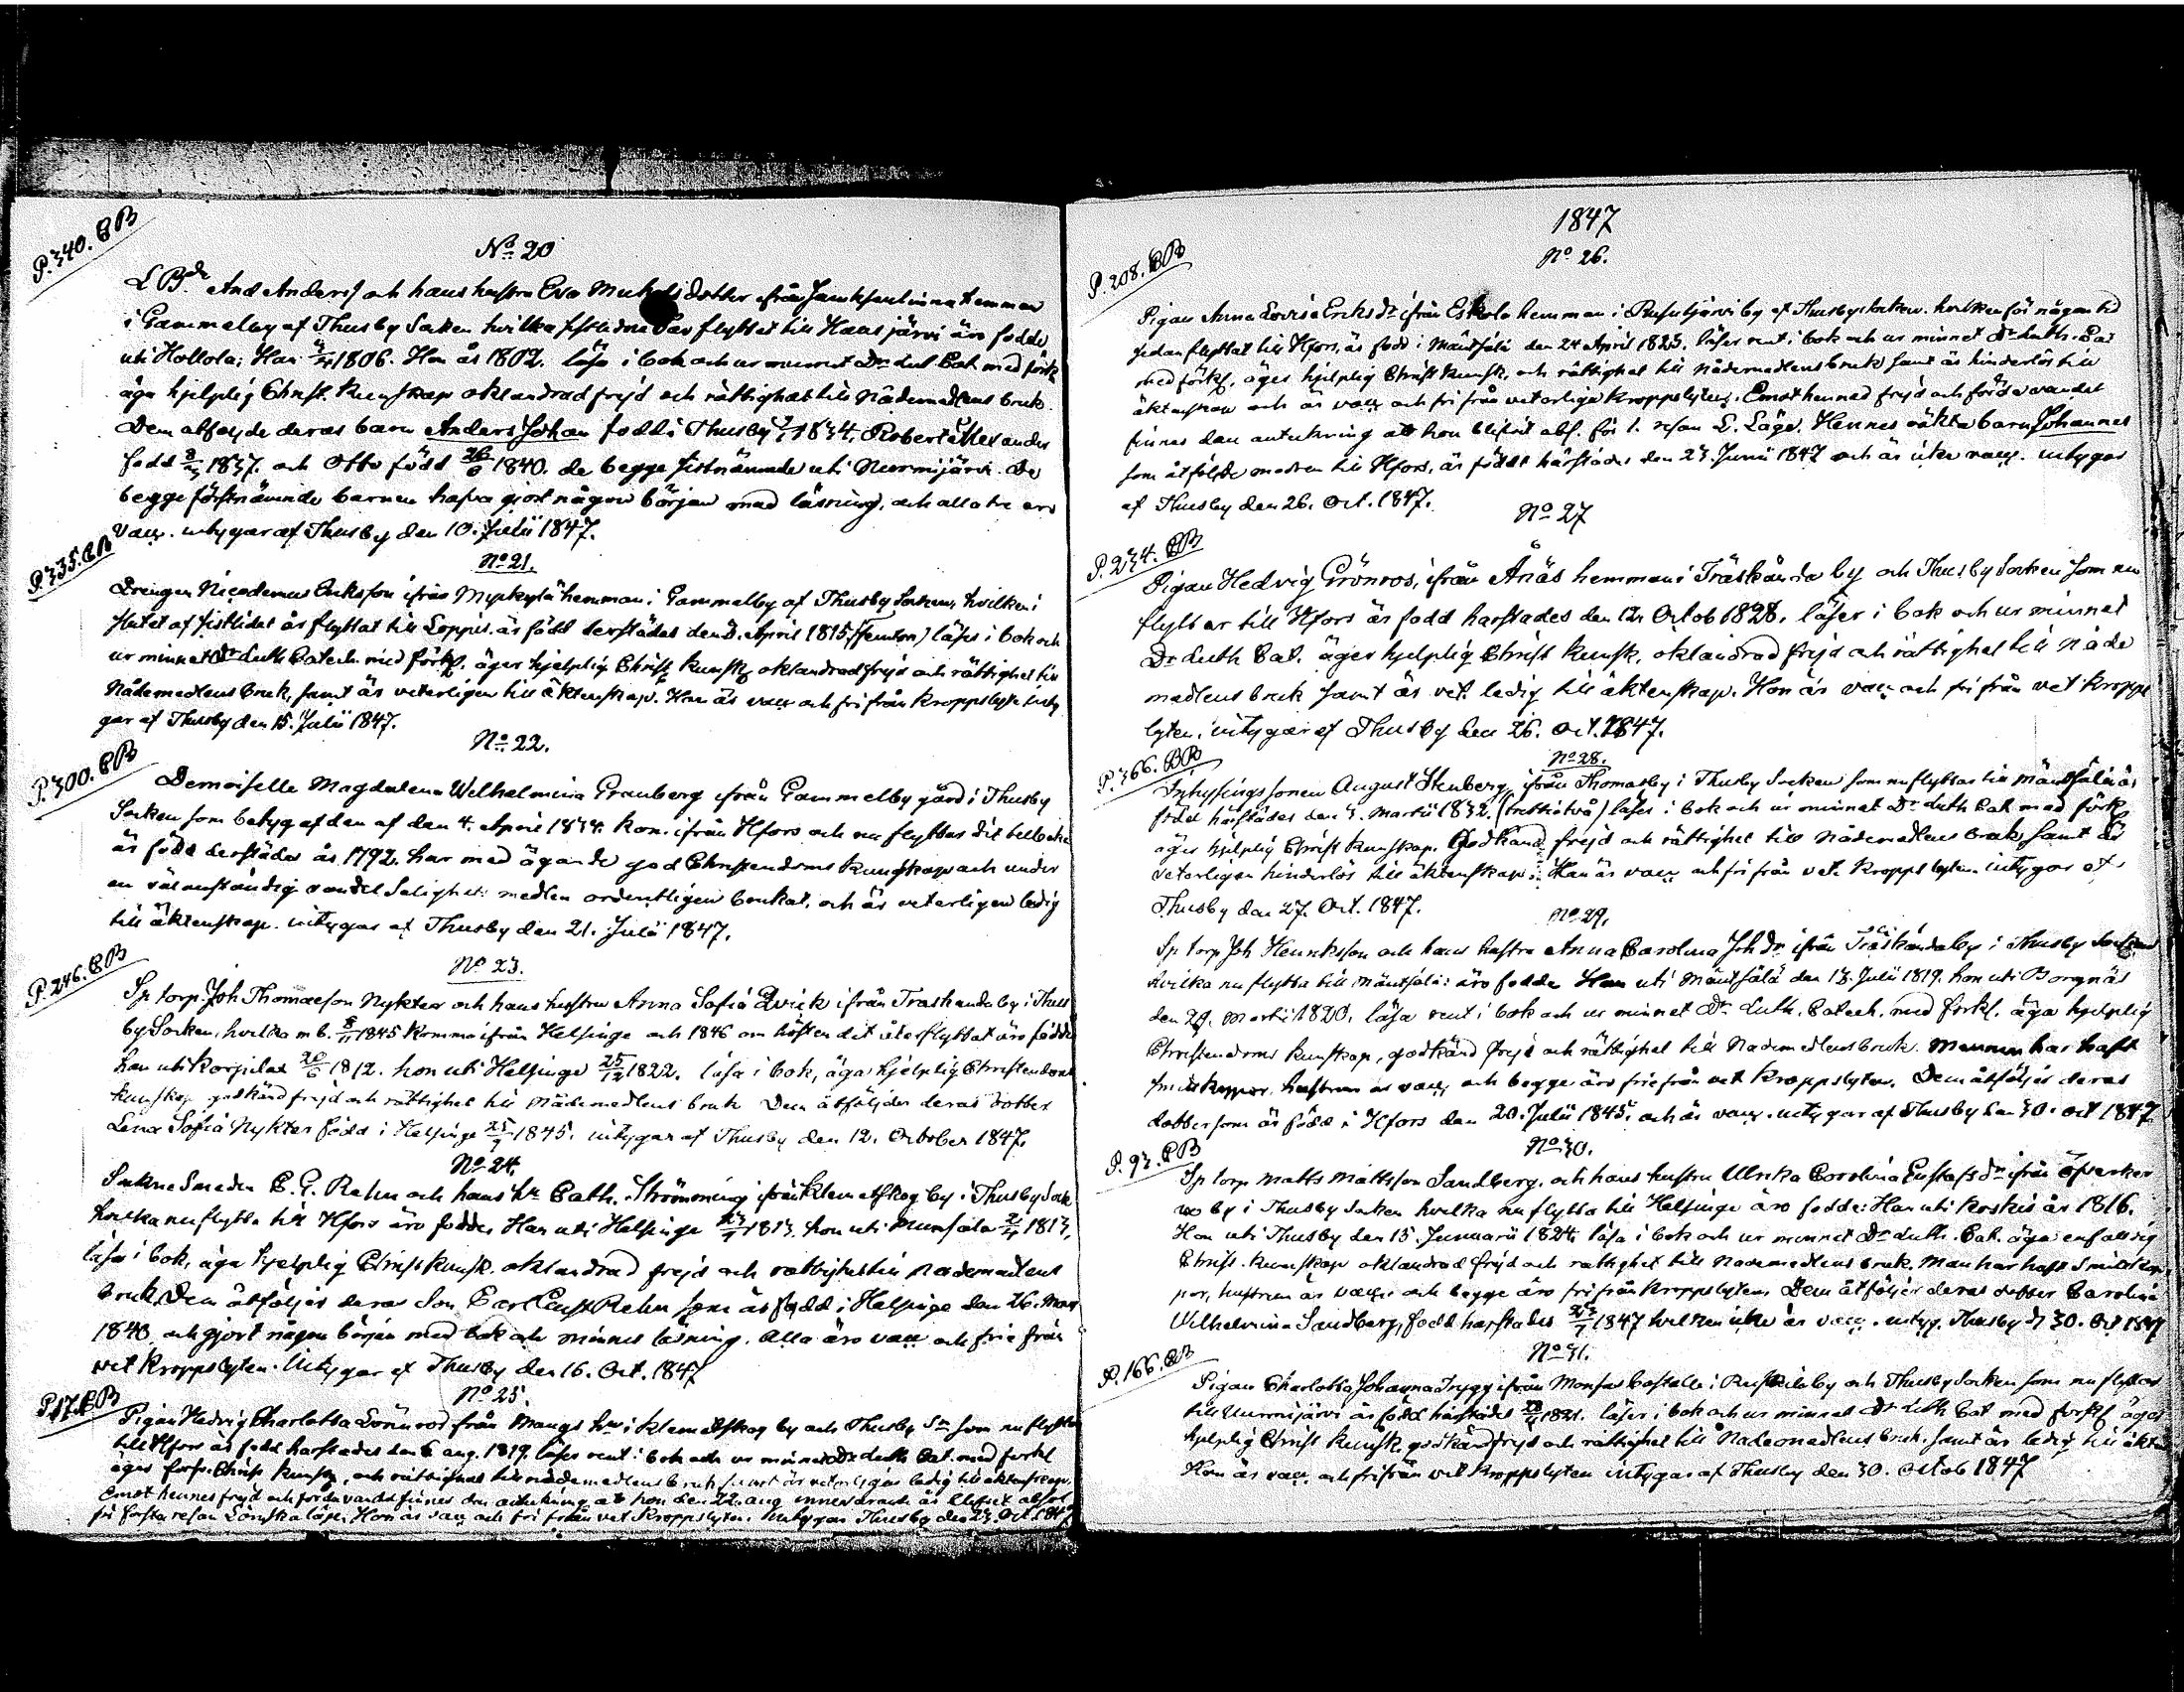 P. 340. CB
No 20
LBdr And Anders och hans hustru Eva Mickelsdotter ifrån hemman
i Gammelby af Thusby Socken hvilka sistlidne flyttat till Hausjärvi äro födde
uti Hollola; Han 1806. Hon år 1802. läsa i bok och ur minnet Dr Lut. Cat. med förk
äga hjelplig Christ. Kunskap oklandrad frejd och rättighet till Nådemedlens bruk.
Dem åtföljde deras barn Anders Johan född i Thusby 1834, Robert Alexander
född 1837. och Otto född 26/6 1840. de begge sistnämnde uti Nurmijärvi. De
begge förstnämnde barnen hafva gjort någon början med läsning, och alla tre äro
vacc. intygar af Thusby den 10. Julii 1847.
P. 335. CB
No 21.
Drengen Nicodemus Eriksson ifrån Myllkylä hemman i Gammelby af Thusby Socken, hvilken i
slutet af sistlidet år flyttat till Loppis. är född derstädes den 3. April 1815, (femton) läser i bok och
ur minnet Dr Luth Catech. med förkl. äger hjelplig Christ. kunsk. oklandrad frejd och rättighet till
Nådemedlens bruk, samt är veterligen till äktenskap. Han är vacc och fri från kroppslyte inty
gar af Thusby den 15. Julii 1847.
No 22.
P. 300. CB
Demoiselle Magdalena Wilhelmina Granberg ifrån Gammelby gård i Thusby
Socken som betyg af den af den 4. April 1834. kom ifrån Hfors och nu flyttas dit tillbaka
är född derstädes år 1792. har med ägande god Christendoms kunskap och under
en välanständig vandel Salighets medlen ordentligen brukat, och är veterligen ledig
till äktenskap. intygas af Thusby den 21. Julii 1847.
P. 246. CB
No 23.
Sp torp. Joh Thomaesson Nykter och hans hustru Anna Sofia Qvick ifrån Träskenda by i Thus
by Socken, hvilka m b. 1845 komma ifrån Helsinge och 1846 om hösten dit återflyttat äro födde
han uti Korpilax 20/6 1812. hon uti Helsinge 25/12 1822. läsa i bok, äga hjelplig Christendoms
kunskap godkänd frejd och rättighet till Nådemedlens bruk Dem åtföljder deras dotter
Lena Sofia Nykter född i Helsinge 1845. intygar af Thusby den 12. October 1847.
No 24.
Sockne Smeden C. G. Rehn och hans hu Cath. Strömming ifrån Klemetskog by i Thusby Sock
hvilka nu flytta till Hfors äro födde Han uti Helsinge 1813. hon uti Mumsala 1813,
läsa i bok, äga hjelplig Christ kunsk. oklandrad frejd och rättighet till Nådemedlens
bruk. Dem åtföljer deras Son Carl Gust Rehn som är född i Helsinge den 26. Mars
1840. och gjort någon början med bok och minnes läsning. Alla äro vacc och frie från
vet kroppslyten. Intygar af Thusby den 16. Oct. 1847
P. 17. CB
No 25.
Pigan Hedvig Charlotta Lönnros från Mangs hm i Klemetskog by och Thusby Sn som nu flyttar
till Hfors är född härstädes den 6 aug. 1819. läser rent i bok och ur minnet Dr Luth Cat. med förkl
äger förs. Christ kunsk, och rättighet till nådemedlens bruk samt är veterligen ledig till äktenskap.
Emot hennes frejd och fordna vandel finnes den anteckning, at hon den 22. aug innevarande år blifvit absol
för första resan Lönskaläge. Hon är vacc och fri från vet Kroppslyten. Intygar Thusby den 23. Oct 1847
1847
No 26.
P. 208. CB
Pigan Anna Lovisa Eriks Dr ifrån Eskola hemman i Rusutjärvi by af Thusby Socken. hvilken för någon tid
sedan flyttat till Hfors, är född i Mäntsälä den 24 April 1823. läser rent i bok och ur minnet Dr Luth. Cat
med förkl. äger hjelplig Christ kunsk, och rättighet till Nådemedlens bruk samt är hinderlös till
äktenskap och är vacc och fri från veterliga kroppslyten. Emot hennes frejd och förda vandel
finnes den anteckning att hon blifvit abs. för 1. resan L. Läge. Hennes oäkta barn Johannes
som åtföljde modren till Hfors, är född härstädes den 23 Junii 1847 och är icke vacc. intygar
af Thusby den 26. Oct. 1847.
No 27
P. 234. CB
Pigan Hedvig Grönros, ifrån Ånäs hemman i Träskända by och Thusby Socken som nu
flyttar till Hfors är född härstädes den 12. Octob 1828. läser i bok och ur minnet
Dr Luth Cat. äger hjelplig Christ kunsk, oklandrad frejd och rättighet till Nåde
medlens bruk samt är vet. ledig till äktenskap. Hon är vacc och fri från vet kropps
lyten. intygar af Thusby den 26. Oct. 1847.
P. 366. CB
No 28.
Inhysings sonen August Stenberg, ifrån Thomasby i Thusby Socken som nu flyttar till Mäntsälä är
född härstädes den 3. Martii 1832. (trettitvå) läser i bok och ur minnet Dr Luth Cat med förkl
äger hjelplig Christ kunskap. Godkänd frejd och rättighet till Nådemedlens bruk samt är
veterligen hinderlös till äktenskap. Han är vacc och fri från vet. kroppslyten. intygar af
Thusby den 27. Oct. 1847.
No 29.
Sp torp Joh Henriksson och hans hustru Anna Carolina Joh Dr ifrån Träskända by i Thusby Socken
hvilka nu flytta till Mäntsälä: äro födde Han uti Mäntsälä den 13. Julii 1819. hon uti Borgnäs
den 29. Martii 1820. läsa rent i bok och ur minnet Dr. Luth. Catech. med förkl. äga hjelplig
Christendoms kunskap, godkänd frejd och rättighet till Nådemedlens bruk. Mannen har haft
smittkoppor hustrun är vacc, och begge äro frie från vet kroppslyten. Dem åtföljer deras
dotter som är född i Hfors den 20. Julii 1845. och är vacc. intygar af Thusby den 30. Oct 1847
No 30.
P. 93. CB
Sp torp Matts Mattsson Sandberg, och hans hustru Ulrika Carolina Gustafs dr ifrån Öfverker
vo by i Thusby Socken hvilka nu flytta till Helsinge äro födde: Han uti Koskis år 1816.
Hon uti Thusby den 15. Januarii 1824. läsa i bok och ur minnet Dr Luth. Cat. äga enfaldig
Christ. kunskap oklandrad frejd och rättighet till Nådemedlens bruk. Man har haft Smittkop
por, hustrun är vacc. och begge äro fri från kroppslyten Dem åtföljer deras dotter Carolina
Wilhelmina Sandberg, född härstädes 1847 hvilken icke är vacc. intyg. Thusby d 30. Oct 1847
No 31.
P. 166. CB
Pigan Charlotta Johanna Trygg ifrån Monsas Boställe i Ruskiala by och Thusby Socken som nu flyttar
till Nurmijärvi är född härstädes 1821. läser i bok och ur minnet Dr Luth Cat med förkl äger
hjelplig Christ kunsk godkänd frejd och rättighet till Nådemedlens bruk. samt är ledig till äkten
Hon är vacc och fri från vet kroppslyten intygar af Thusby den 30. Octob 1847